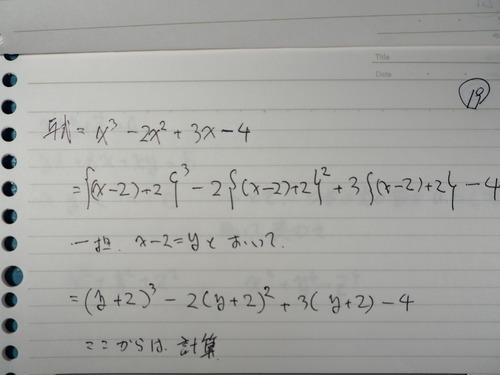 Title
Date
19
与式 = x³ - 2x² + 3x - 4
= {(x-2)+2}³ - 2{(x-2)+2}² + 3{(x-2)+2} - 4
一担、x-2=yとおいて、
= (y+2)³ - 2(y+2)² + 3(y+2) - 4
ここからは、計算